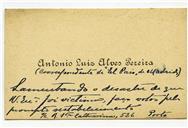 Antonio Luis Alves Pereira
(Correspondente de El Pais, de Madrid)
Lamentando o desastre de que
V. Ex.ª foi victima, faz votos pelo
prompto restabelecimento
R. de Stª Catharina, 526 Porto